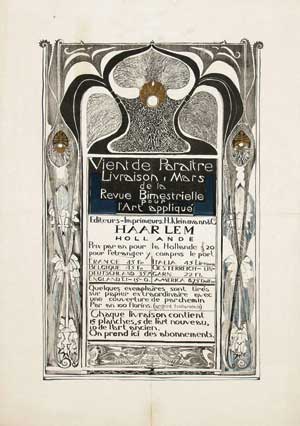 Vient de Paraître
Livraison 1 Mars
de la
Revue Bimestrielle
pour
l'Art appliqué
Editeurs-Imprimeurs, H. Kleinmann & Co
HAARLEM
HOLLANDE
Prix par an pour la Hollande f 20
pour l'etranger y compris le port
FRANCE 45 Frs ITALIA 45 Lire
BELGIQUE 45 Frs OESTERREICH-UN-
DEUTSCHLAND 35 MARK 22 Fl.
ENGLAND AMERICA
Quelques exemplaires sont tirés
sur papier extraordinaire avec
une couverture de parchemin
Par an 100 florins
Chaque livraison contient
15 planches, 5 de l'art nouveau,
10 de l'art ancien.
On prend ici des abonnements.